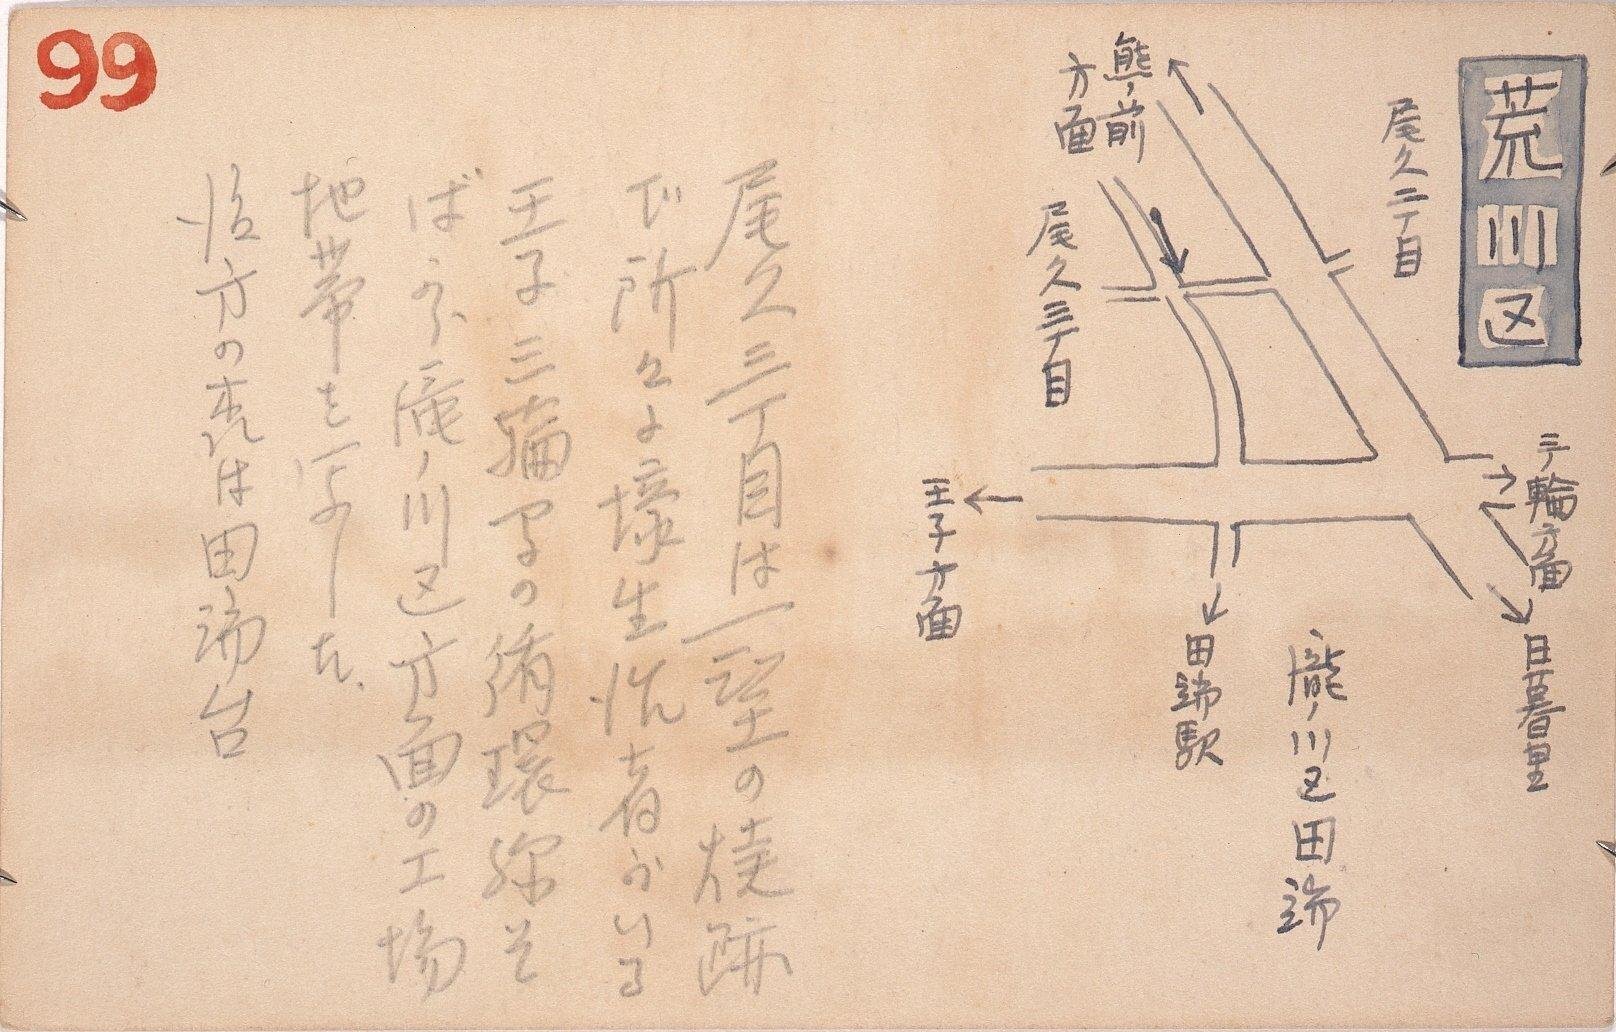 99
荒川区
尾久二丁目
熊ノ前
方面
尾久三丁目
三ノ輪方面
日暮里
王子方面
田端駅
瀧ノ川区田端
尾久三丁目は一望の焼跡
で所々に壕生活者がいる
王子三輪間の循環線そ
ばから滝ノ川区方面の工場
地帯を写した。
後方の森は田端台